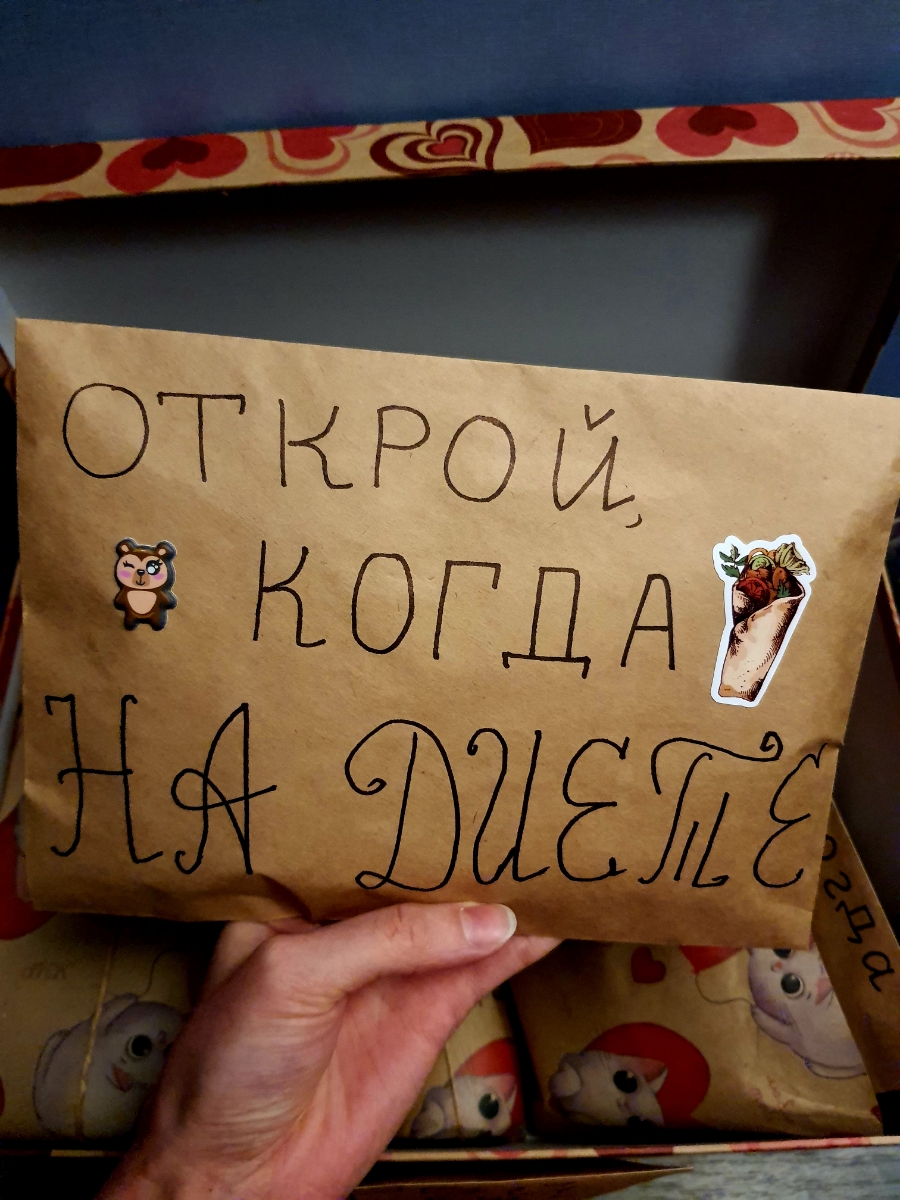 ОТКРОЙ,
КОГДА
НА ДИЕТЕ